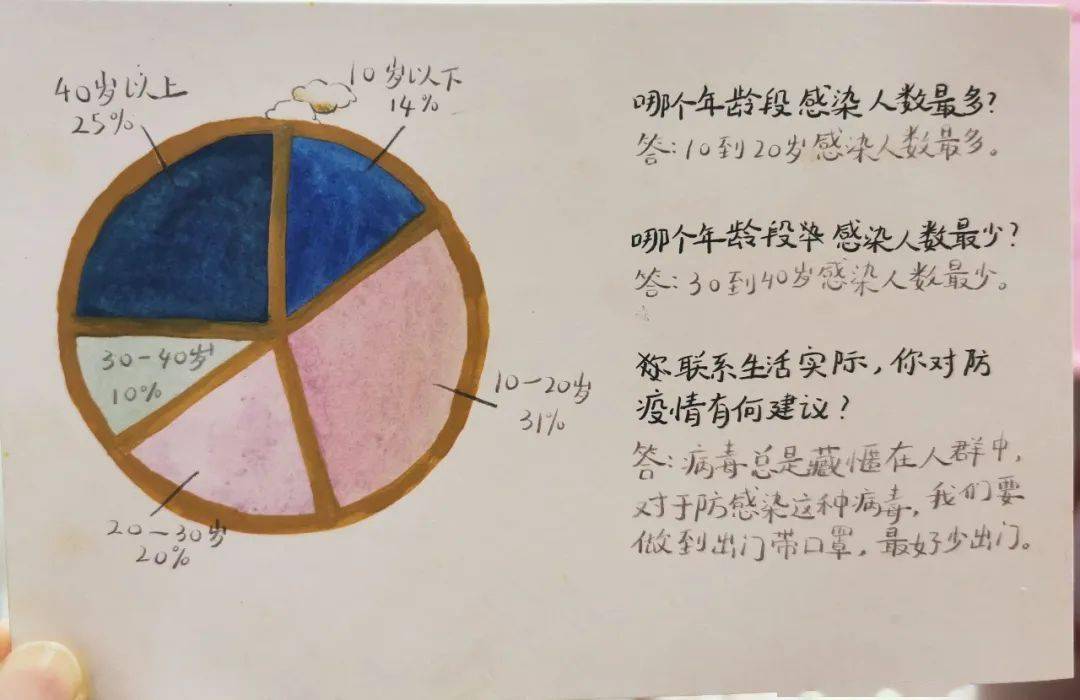 40岁以上
25%
10岁以下
14%
30-40岁
10%
10-20岁
31%
20-30岁
20%
哪个年龄段感染人数最多?
答:10到20岁感染人数最多。
哪个年龄段染感染人数最少?
答:30到40岁感染人数最少。
你联系生活实际,你对防
疫情有何建议?
答:病毒总是藏匿在人群中,
对于防感染这种病毒,我们要
做到出门带口罩,最好少出门。